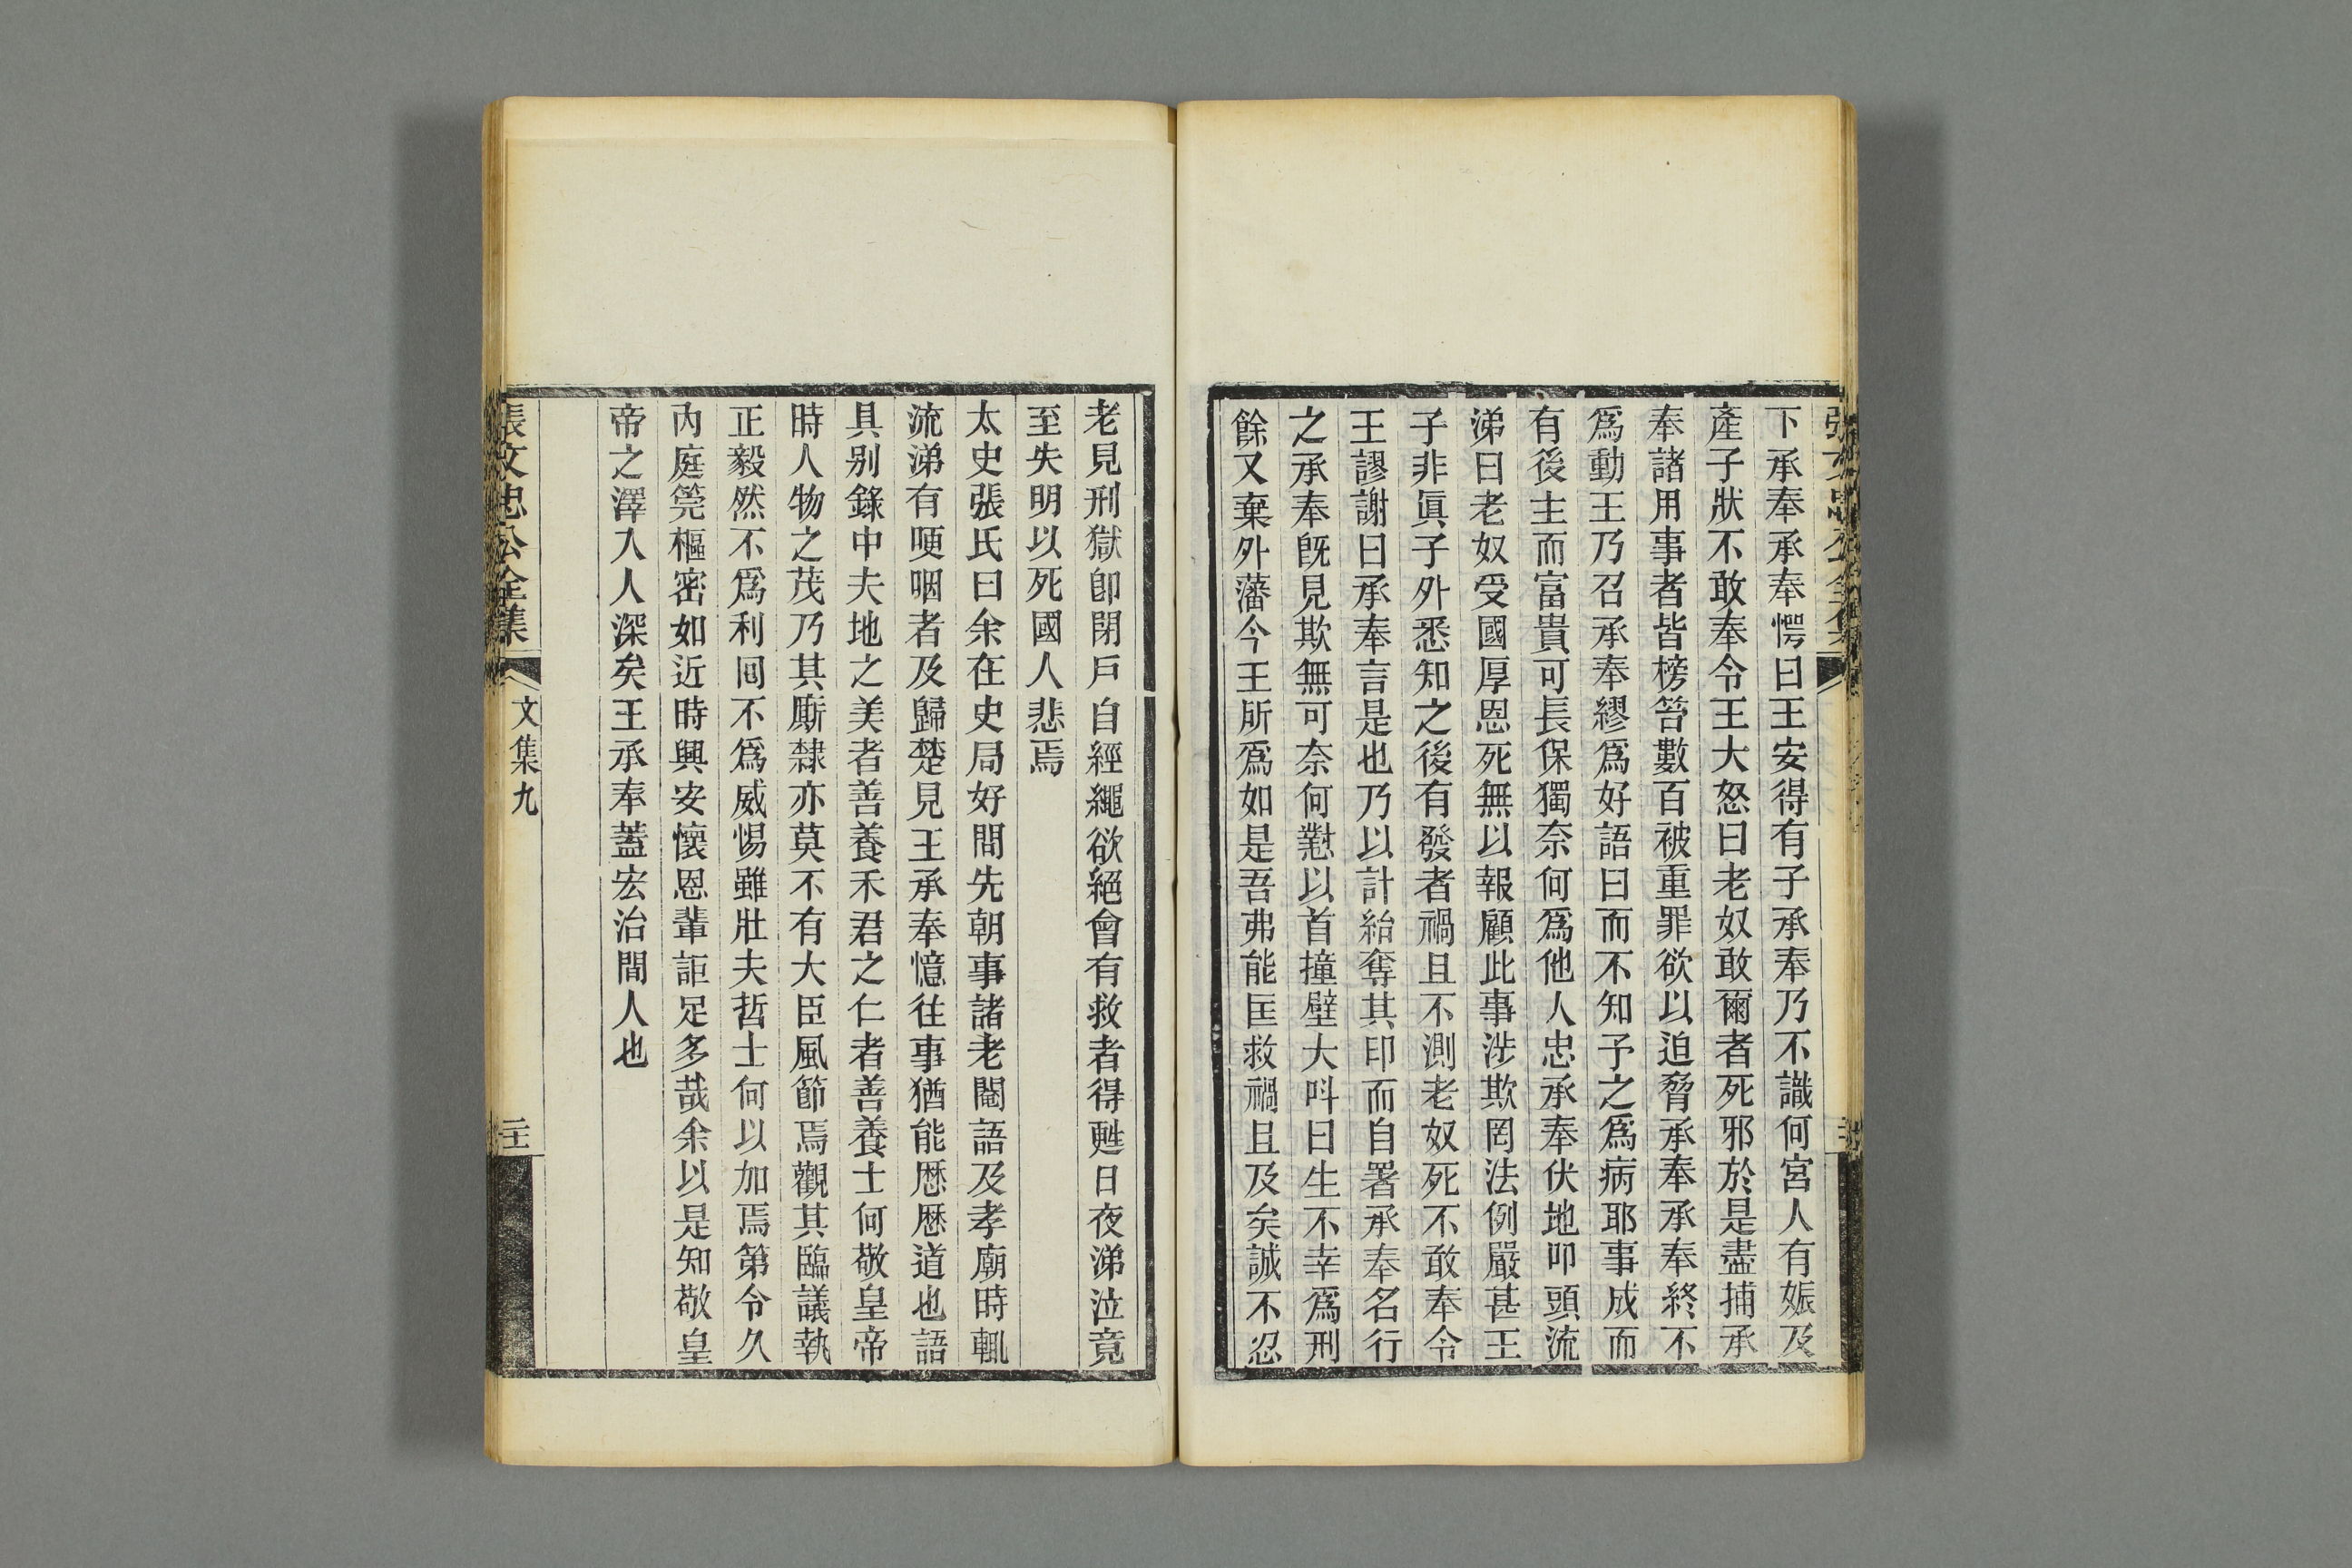 下承奉承奉愕曰王安得有子承奉乃不識何宮人有娠及
產子狀不敢奉令王大怒曰老奴敢爾者死邪於是盡捕承
奉諸用事者皆榜笞數百被重罪欲以迫脅承奉承奉終不
爲動王乃召承奉繆爲好語曰而不知予之爲病耶事成而
有後主而富貴可長保獨奈何爲他人忠承奉伏地叩頭流
涕曰老奴受國厚恩死無以報顧此事涉欺罔法例嚴甚王
子非眞子外悉知之後有發者禍且不測老奴死不敢奉令
王謬謝曰承奉言是也乃以計紿奪其印而自署承奉名行
之承奉旣見欺無可奈何懟以首撞壁大呌曰生不幸爲刑
餘又棄外藩今王所爲如是吾弗能匡救禍且及矣誠不忍
老見刑獄卽閉戶自經繩欲絕會有救者得甦日夜涕泣竟
至失明以死國人悲焉
太史張氏曰余在史局好問先朝事諸老閹語及孝廟時輒
流涕有哽咽者及歸楚見王承奉憶往事猶能歷歷道也語
具别錄中夫地之美者善養禾君之仁者善養士何敬皇帝
時人物之茂乃其廝隸亦莫不有大臣風節焉觀其臨議執
正毅然不爲利囘不爲威惕雖壯夫哲士何以加焉第令久
內庭筦樞密如近時興安懷恩輩詎足多哉余以是知敬皇
帝之澤入人深矣王承奉蓋宏治間人也
張文忠公全集
文集九